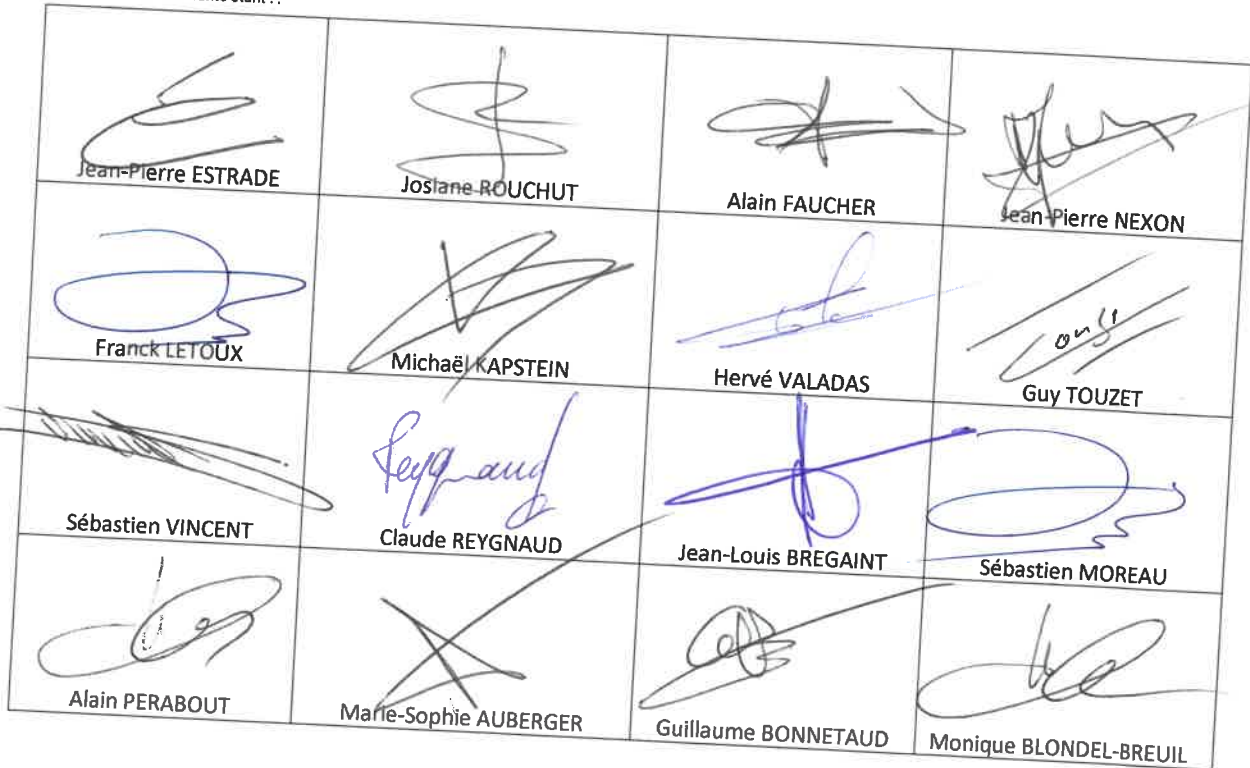 étant :
Jean-Pierre ESTRADE
Josiane ROUCHUT
Alain FAUCHER
Jean-Pierre NEXON
Franck LETOUX
Michaël KAPSTEIN
Hervé VALADAS
Guy TOUZET
Reygnaud
Sébastien VINCENT
Claude REYGNAUD
Jean-Louis BREGAINT
Sébastien MOREAU
Alain PERABOUT
Marie-Sophie AUBERGER
Guillaume BONNETAUD
Monique BLONDEL-BREUIL